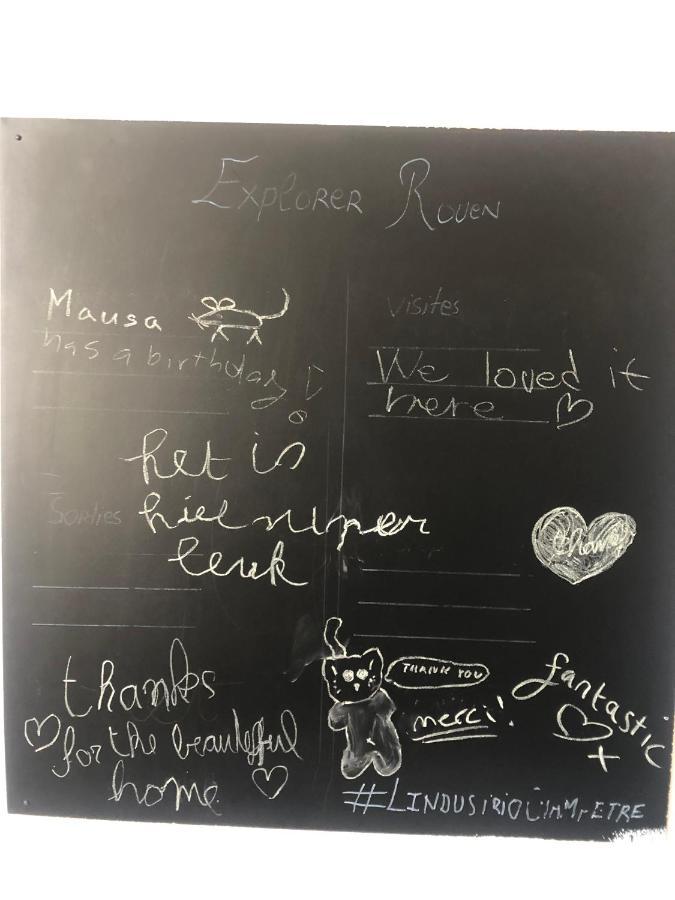 Explorer Rouen
Mausa
has a birthday!
Visites
We loved it
here
het is
hiel super
leuk
Sorties
thanks
for the beautifful
home
THANK YOU
merci!
fantastic